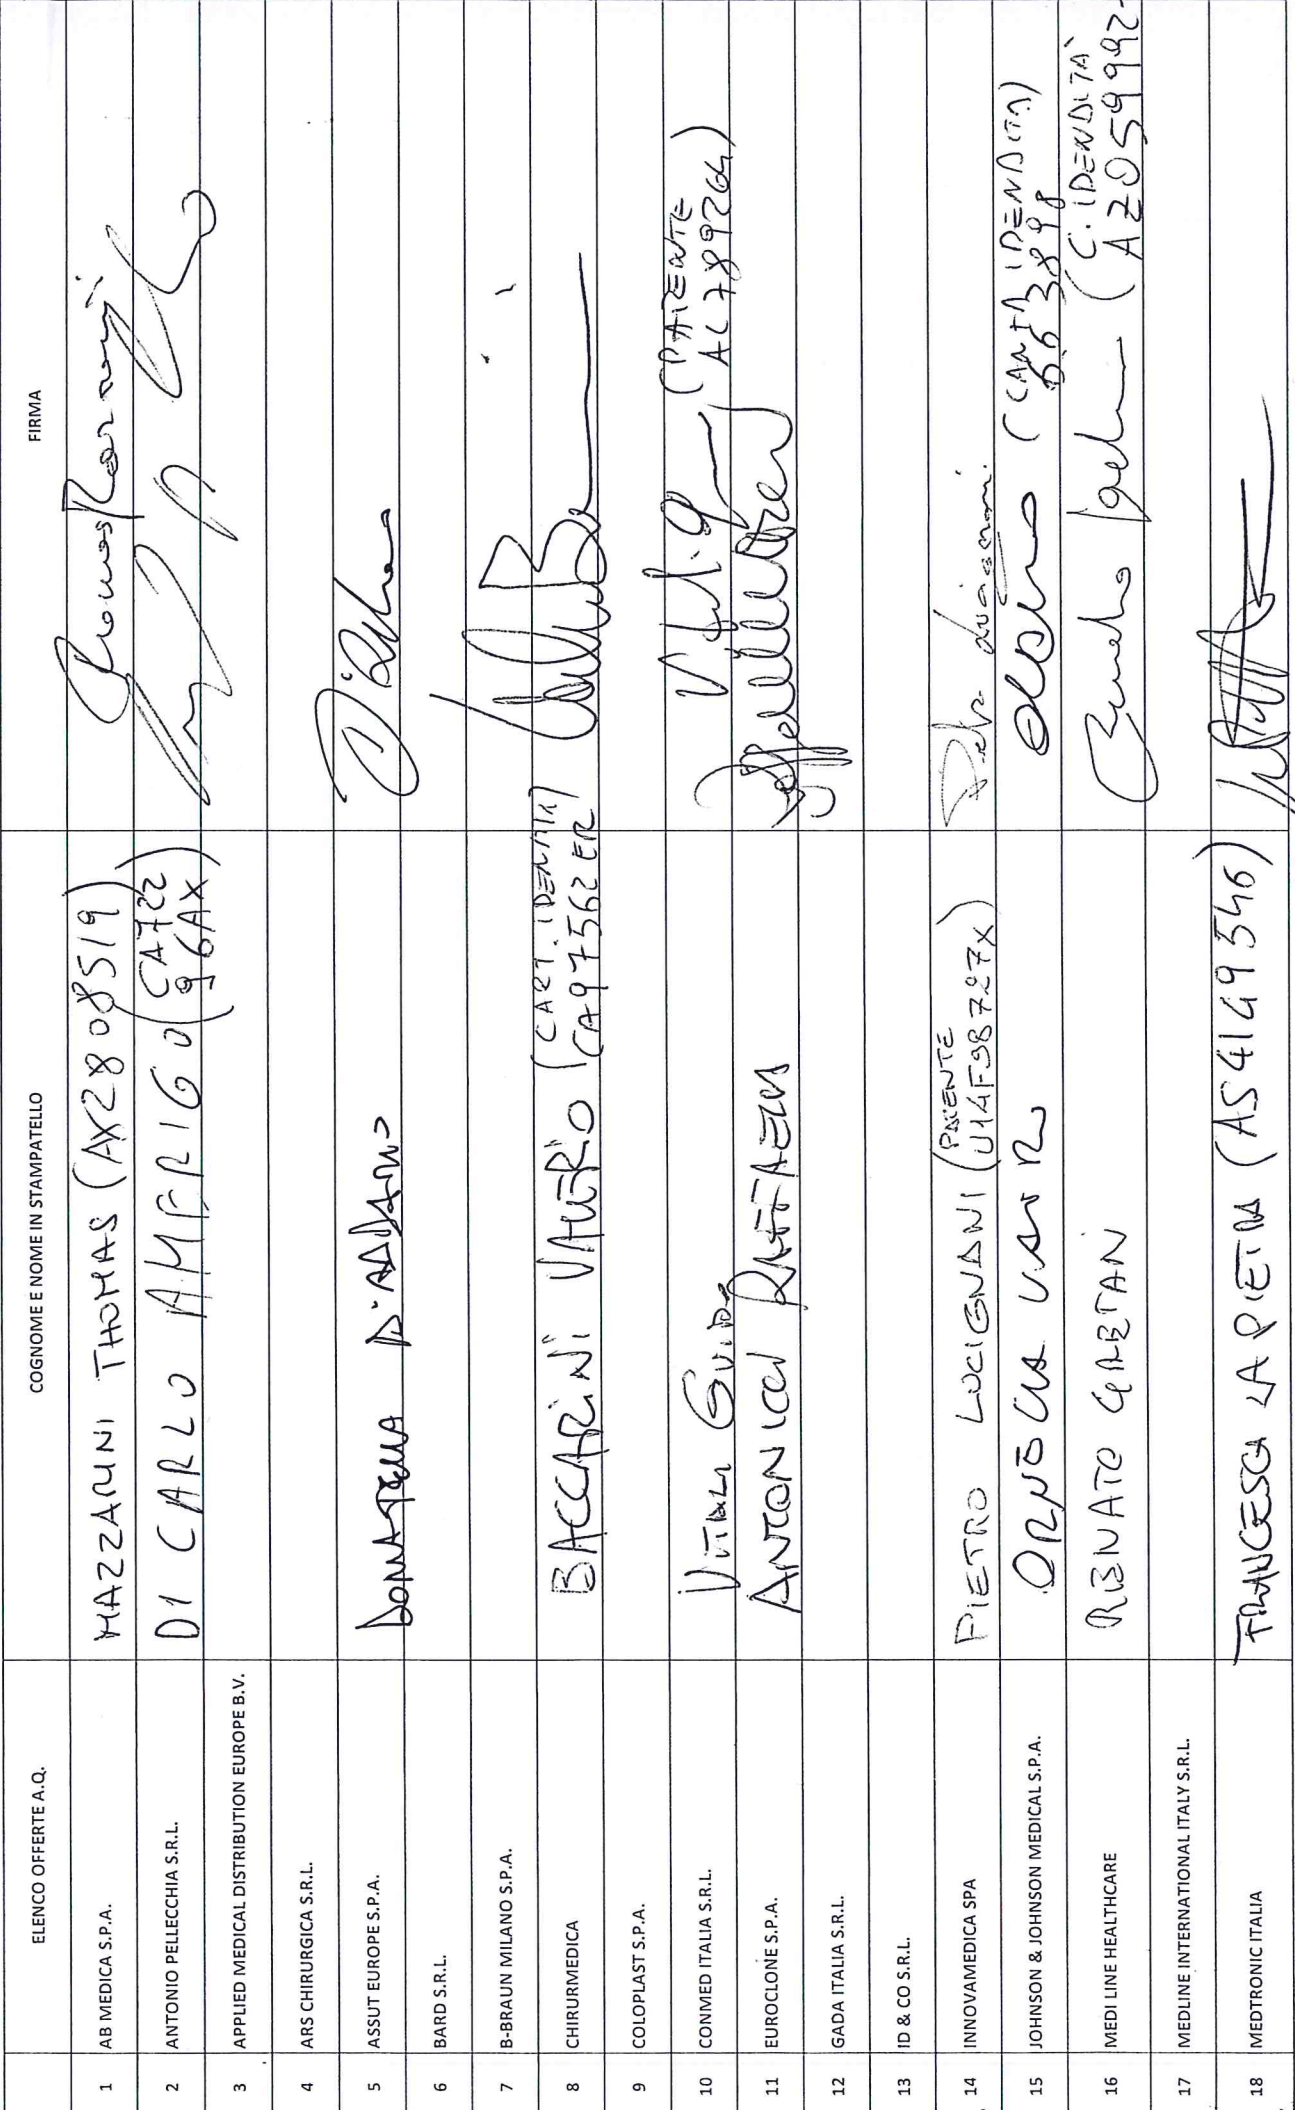 ELENCO OFFERTE A.Q. COGNOME E NOME IN STAMPATELLO FIRMA
1 AB MEDICA S.P.A. MAZZARINI THOMAS (AX2808519)
2 ANTONIO PELLECCHIA S.R.L. DI CARLO AMERIGO (CA722
96AX)
3 APPLIED MEDICAL DISTRIBUTION EUROPE B.V.
4 ARS CHIRURGICA S.R.L.
5 ASSUT EUROPE S.P.A. DONATELLA D'ADDARIO
6 BARD S.R.L.
7 B-BRAUN MILANO S.P.A.
8 CHIRURMEDICA BACCARINI VALERIO (CART. IDENTITA'
CA97562ER)
9 COLOPLAST S.P.A.
10 CONMED ITALIA S.R.L. VITALI GUIDO (PATENTE
11 EUROCLONE S.P.A. ANTONICCI RAFFAELLA
12 GADA ITALIA S.R.L.
13 ID & CO S.R.L.
14 INNOVAMEDICA SPA PIETRO LUCIGNANI (PATENTE
U14F98727X)
15 JOHNSON & JOHNSON MEDICAL S.P.A. (CARTA IDENDITA)
16 MEDI LINE HEALTHCARE (C. IDENDITÀ
AZ0599992
17 MEDLINE INTERNATIONAL ITALY S.R.L.
18 MEDTRONIC ITALIA FRANCESCA LA PIETRA (AS4149546)